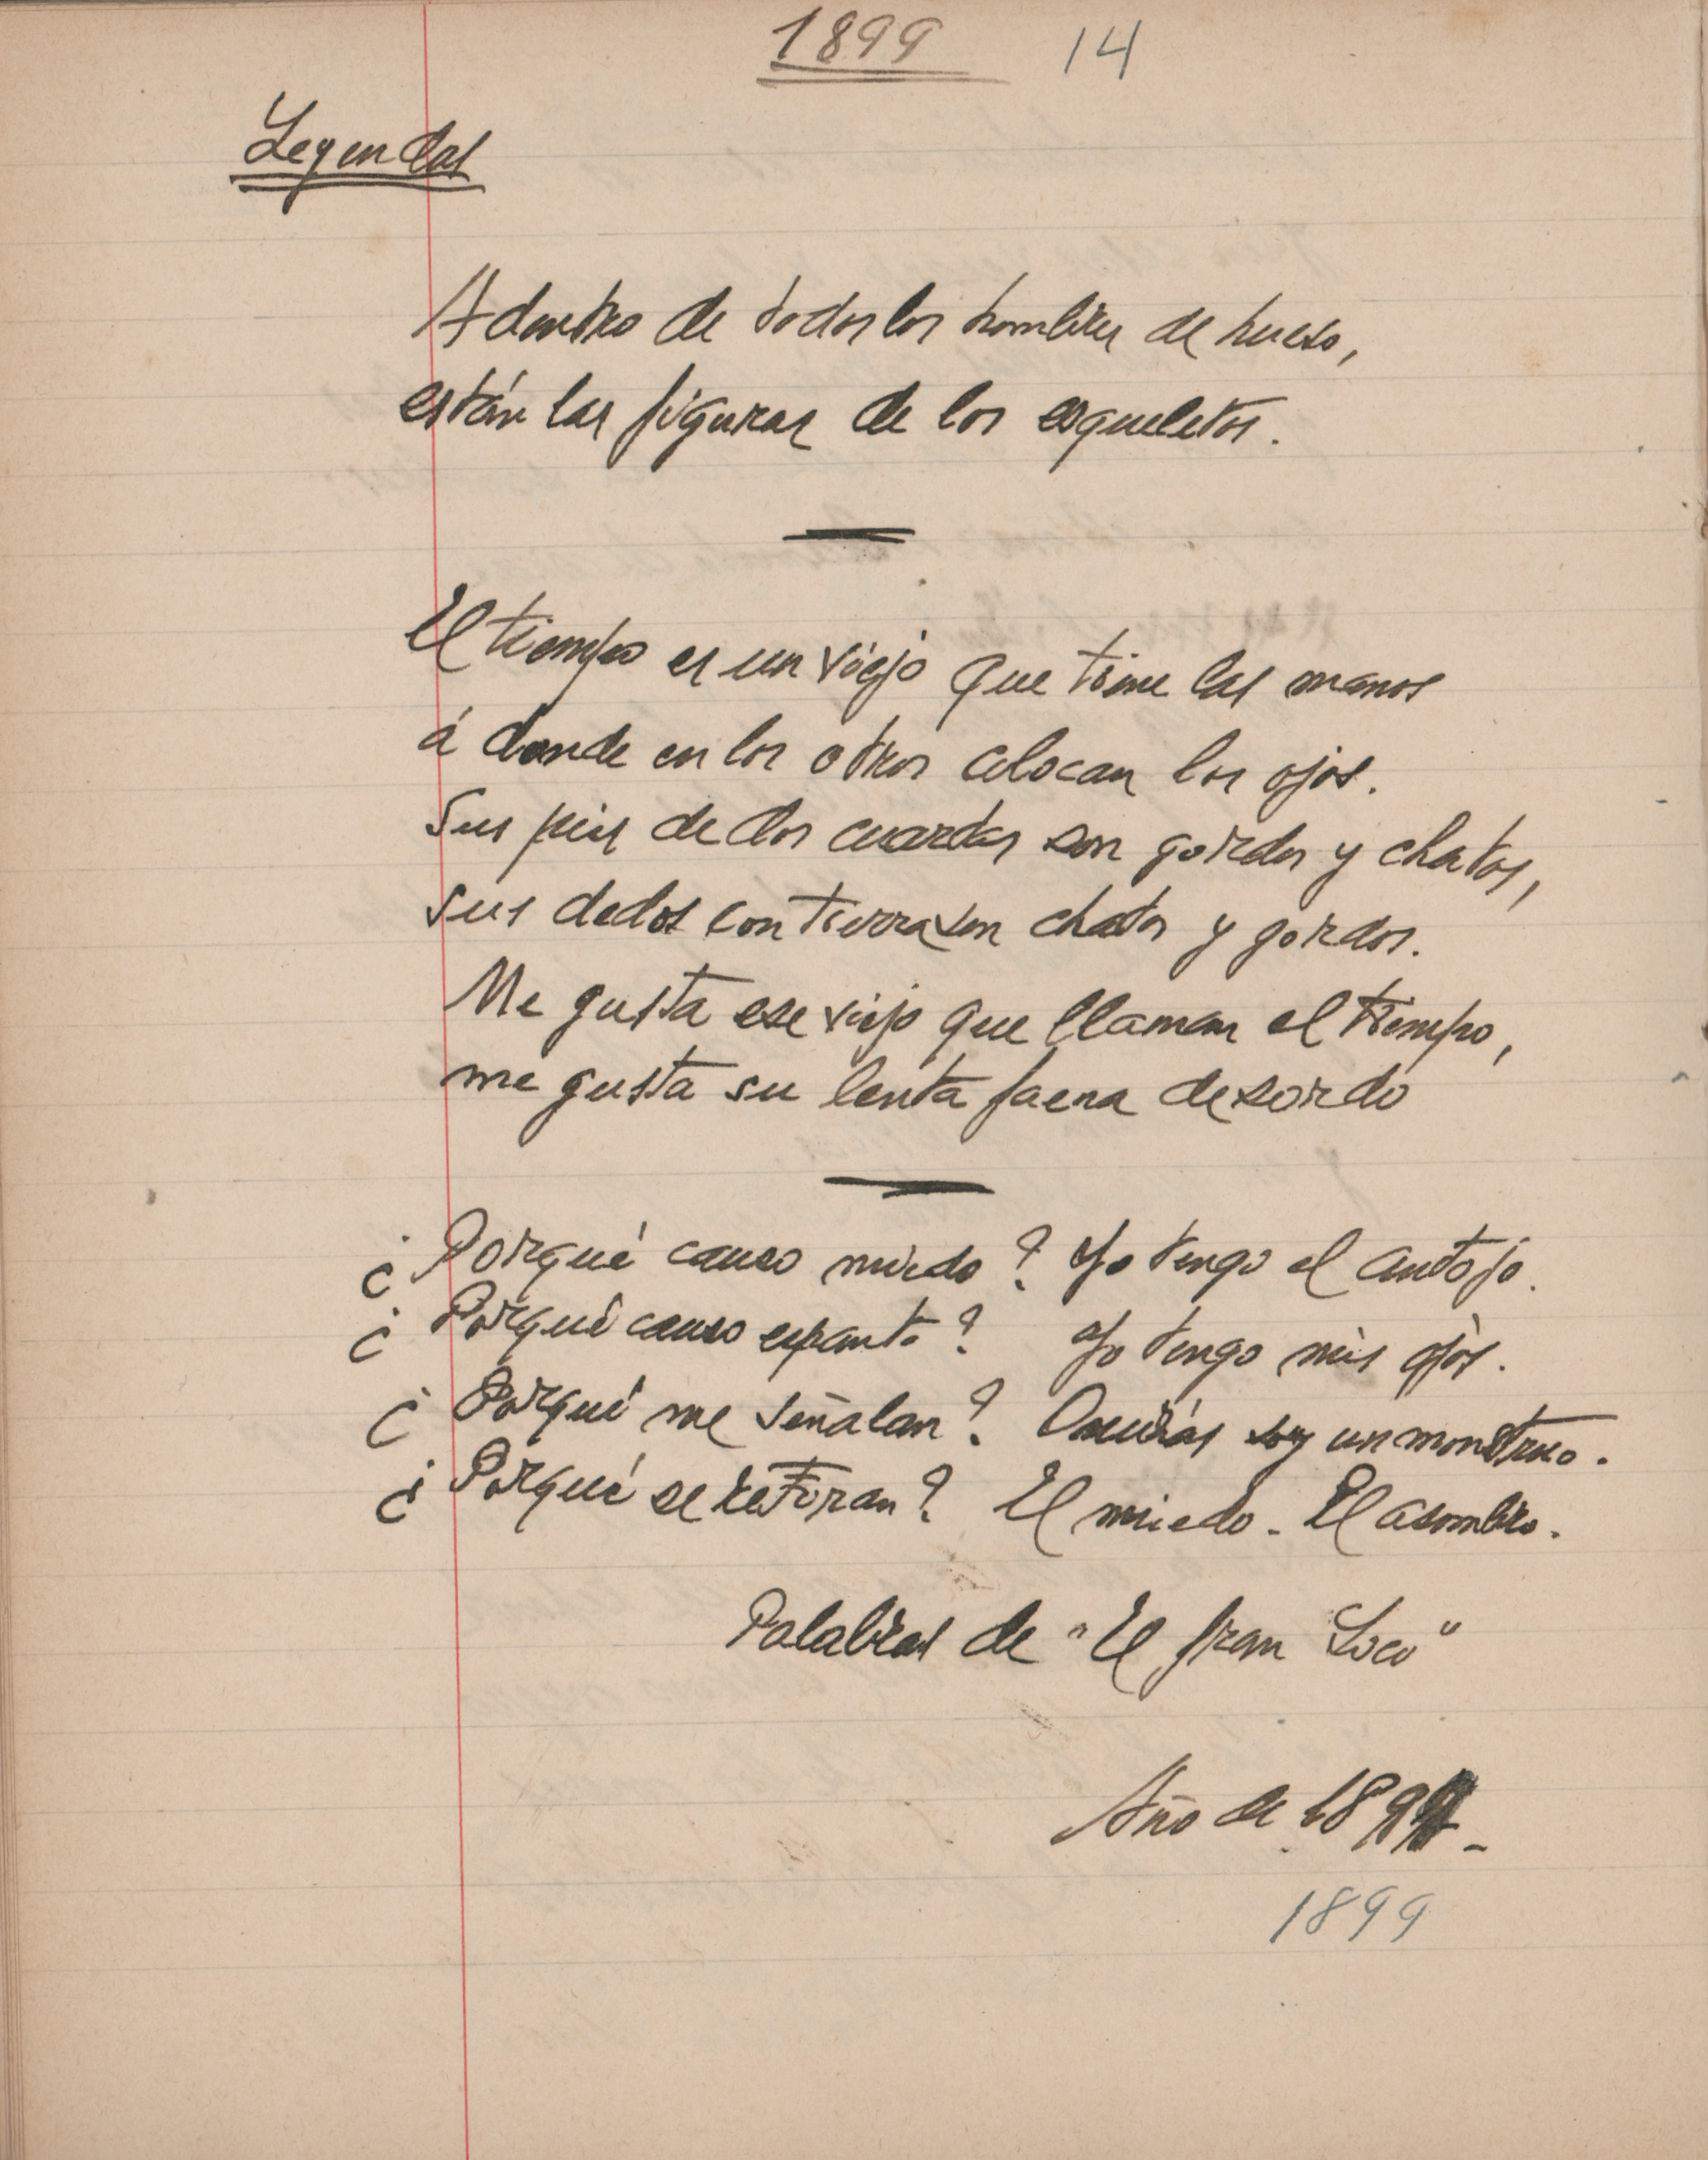 1899 14
Leyendas
Adentro de todos los hombres de hueso,
están las figuras de los esqueletos.
El tiempo es un viejo que tiene las manos
á donde en los otros colocan los ojos.
Sus pies de dos cuartas son gordos y chatos,
sus dedos con tierra son chatos y gordos.
Me gusta ese viejo que llaman el tiempo,
me gusta su lenta faena de sordo
¿Porqué causo miedo? Yo tengo el antojo.
¿Porqué causo espanto? Yo tengo mis ojos.
¿Porqué me señalan? Quizás soy un monstruo.
¿Porqué se retiran? El miedo. El asombro.
Palabras de "El gran Loco"
Año de 1899-
1899